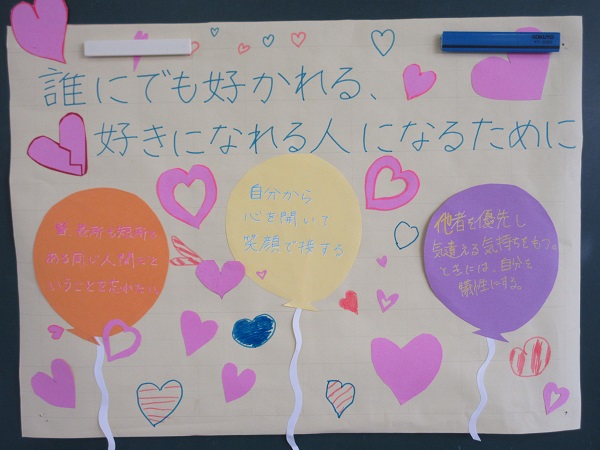 誰にでも好かれる、
好きになれる人になるために
長所も短所も
ある同じ人間だと
いうことを忘れない。
自分から
心を開いて
笑顔で接する
他者を優先し
気遣える気持ちをもつ。
ときには、自分を
犠牲にする。
KOKUYO